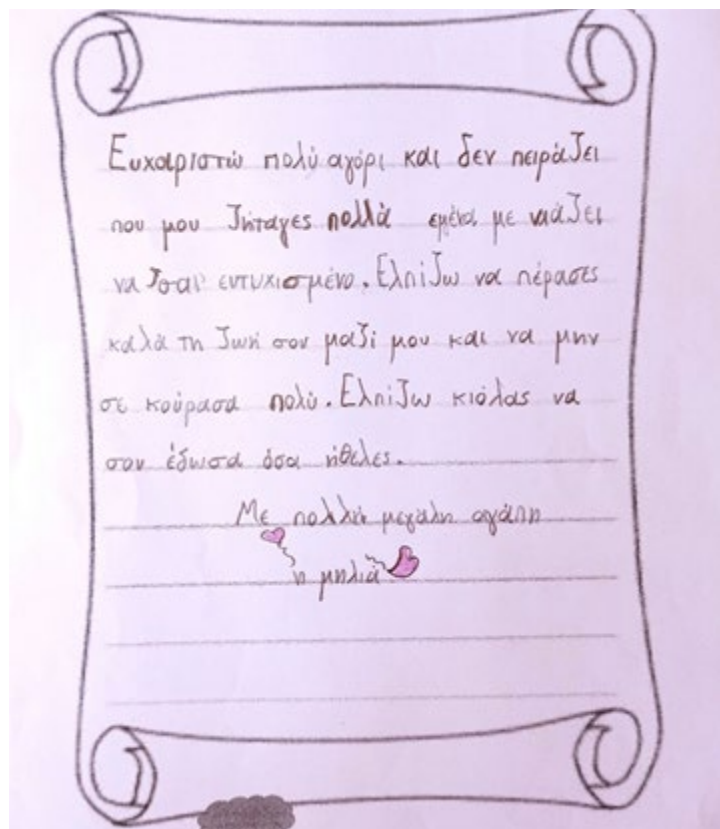 Ευχαριστώ πολύ αγόρι και δεν πειράζει
που μου ζήταγες πολλά εμένα με νιάζει
να σαι ευτυχισμένο. Ελπίζω να πέρασες
καλά τη ζωή σου μαζί μου και να μην
σε κούρασα πολύ. Ελπίζω κιόλας να
σου έδωσα όσα ήθελες.
Με πολλή μεγάλη αγάπη
η μηλιά